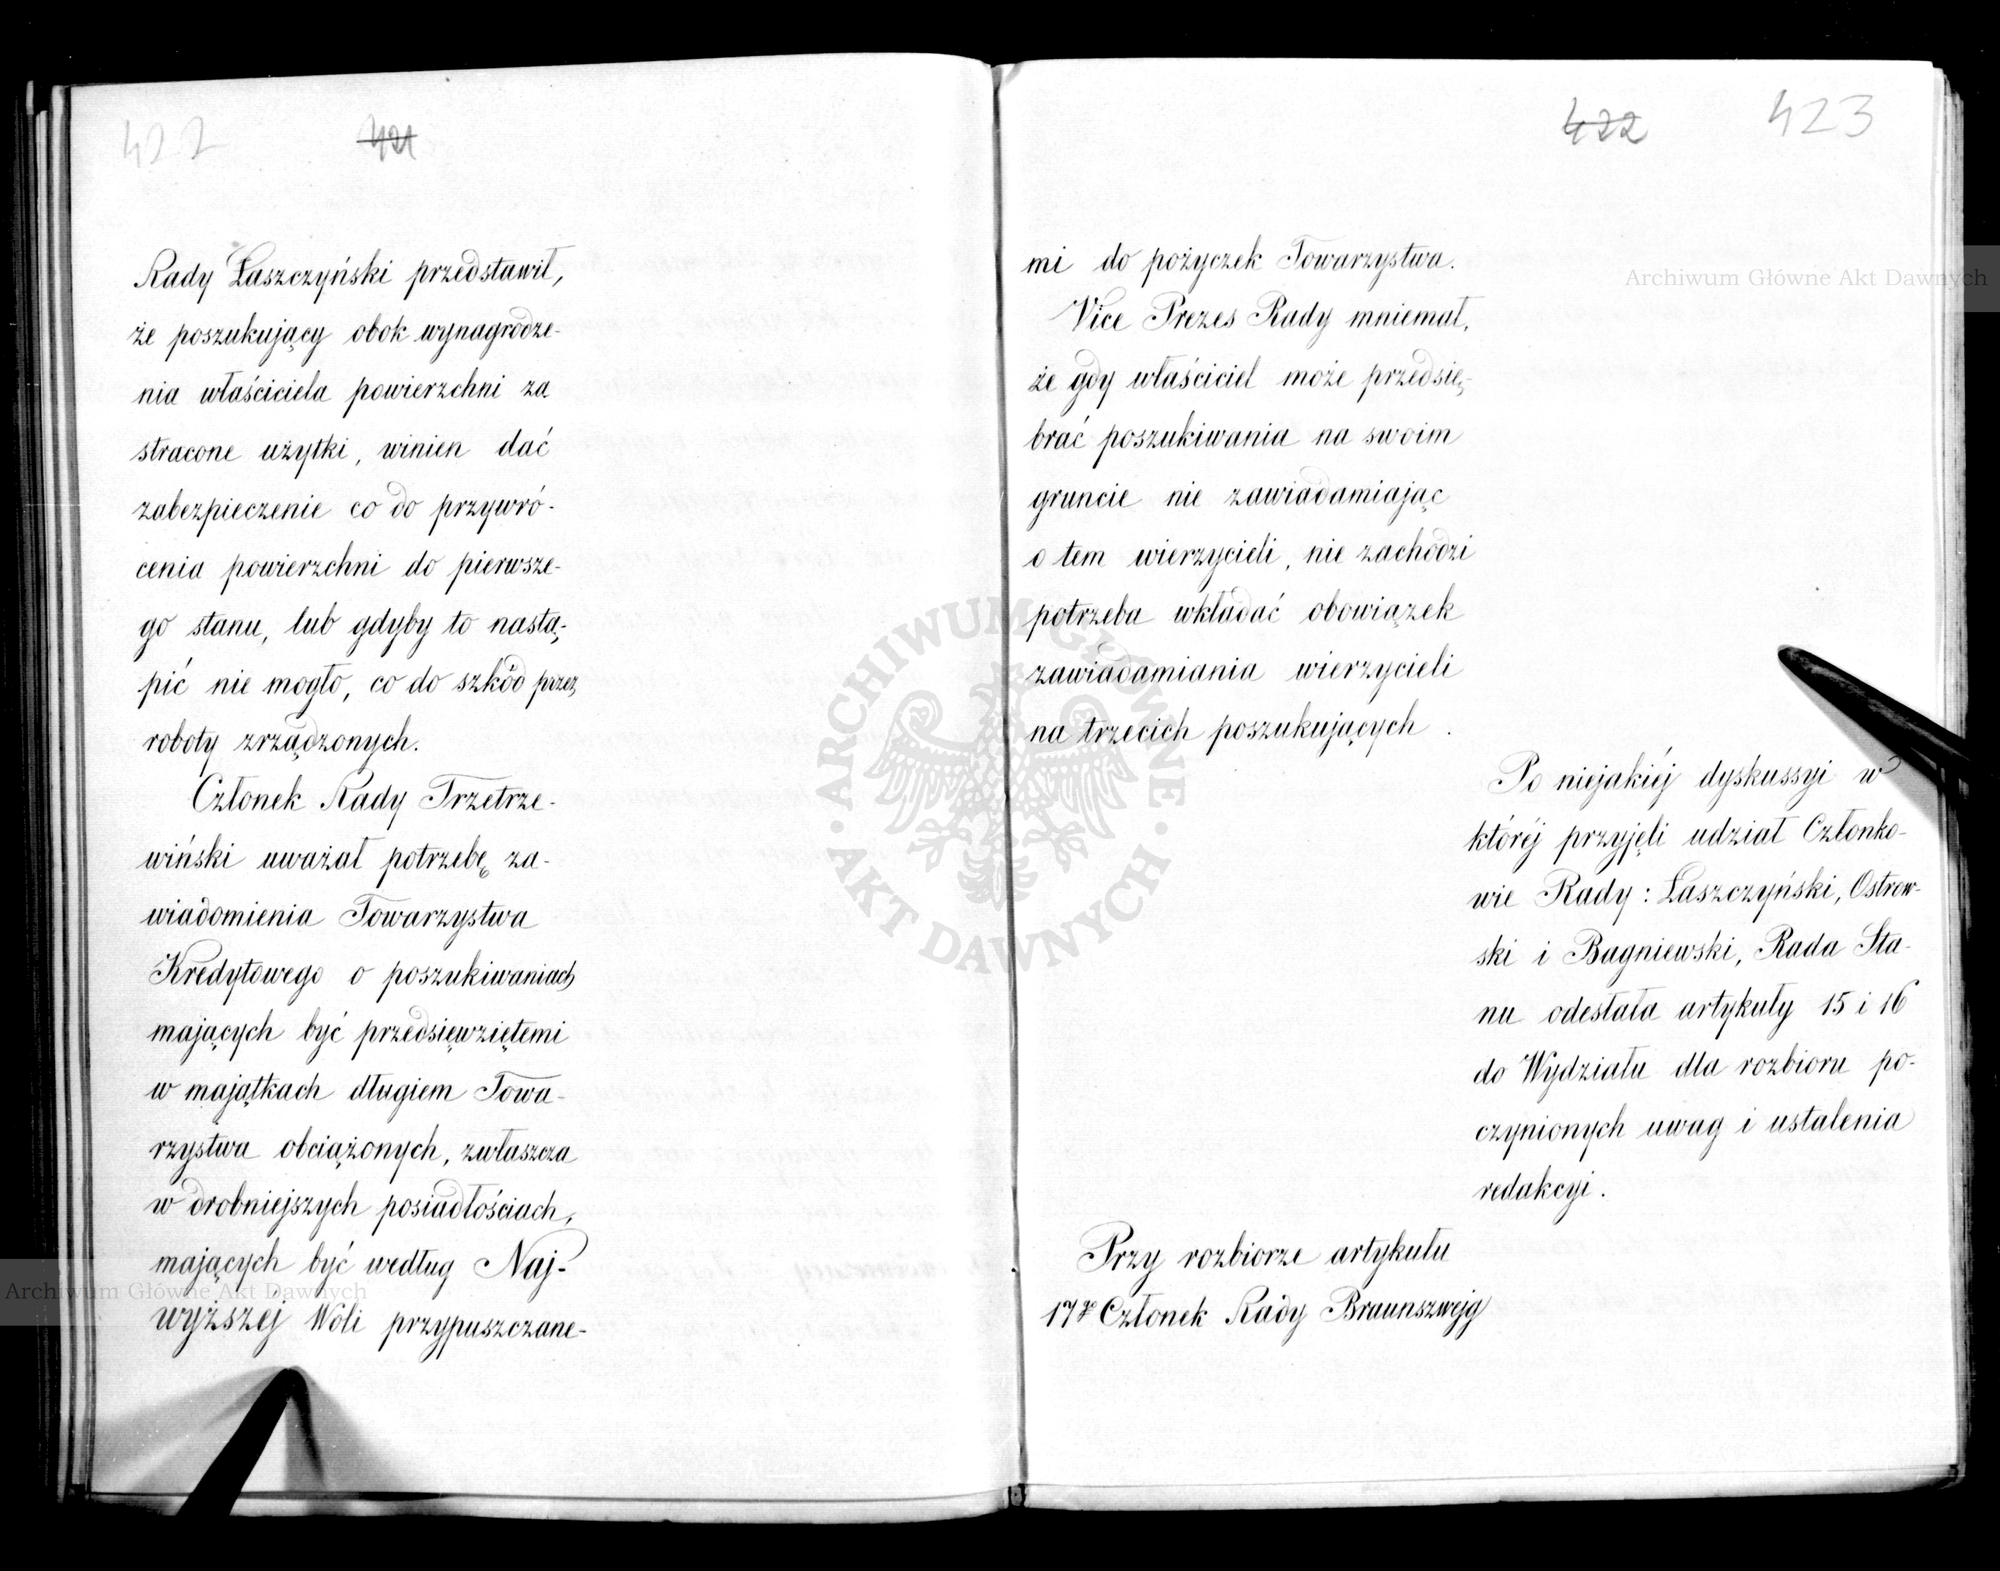 422 421
Rady Łaszczyński przedstawił,
że poszukujący obok wynagrodze-
nia właściciela powierzchni za
stracone użytki, winien dać
zabezpieczenie co do przywró-
cenia powierzchni do pierwsze-
go stanu, lub gdyby to nastą-
pić nie mogło, co do szkód przez
roboty zrządzonych.
Członek Rady Trzetrze-
wiński uważał potrzebę za-
wiadomienia Towarzystwa
Kredytowego o poszukiwaniach
mających być przedsięwziętemi
w majątkach długiem Towa-
rzystwa obciążonych, zwłaszcza
w drobniejszych posiadłościach,
mających być według Naj-
wyższej Woli przypuszczane-
422 423
mi do pożyczek Towarzystwa.
Vice Prezes Rady mniemał,
że gdy właściciel może przedsię-
brać poszukiwania na swoim
gruncie nie zawiadamiając
o tem wierzycieli, nie zachodzi
potrzeba wkładać obowiązek
zawiadamiania wierzycieli
na trzecich poszukujących.
Po niejakiéj dyskussyi w
któréj przyjęli udział Członko-
wie Rady: Łaszczyński, Ostrow-
ski i Bagniewski, Rada Sta-
nu odesłała artykuły 15 i 16
do Wydziału dla rozbioru po-
czynionych uwag i ustalenia
redakcyi.
Przy rozbiorze artykułu
17go Członek Rady Braunszwejg
Archiwum Główne Akt Dawnych
Archiwum Główne Akt Dawnych
ARCHIWUM GŁÓWNE
AKT DAWNYCH